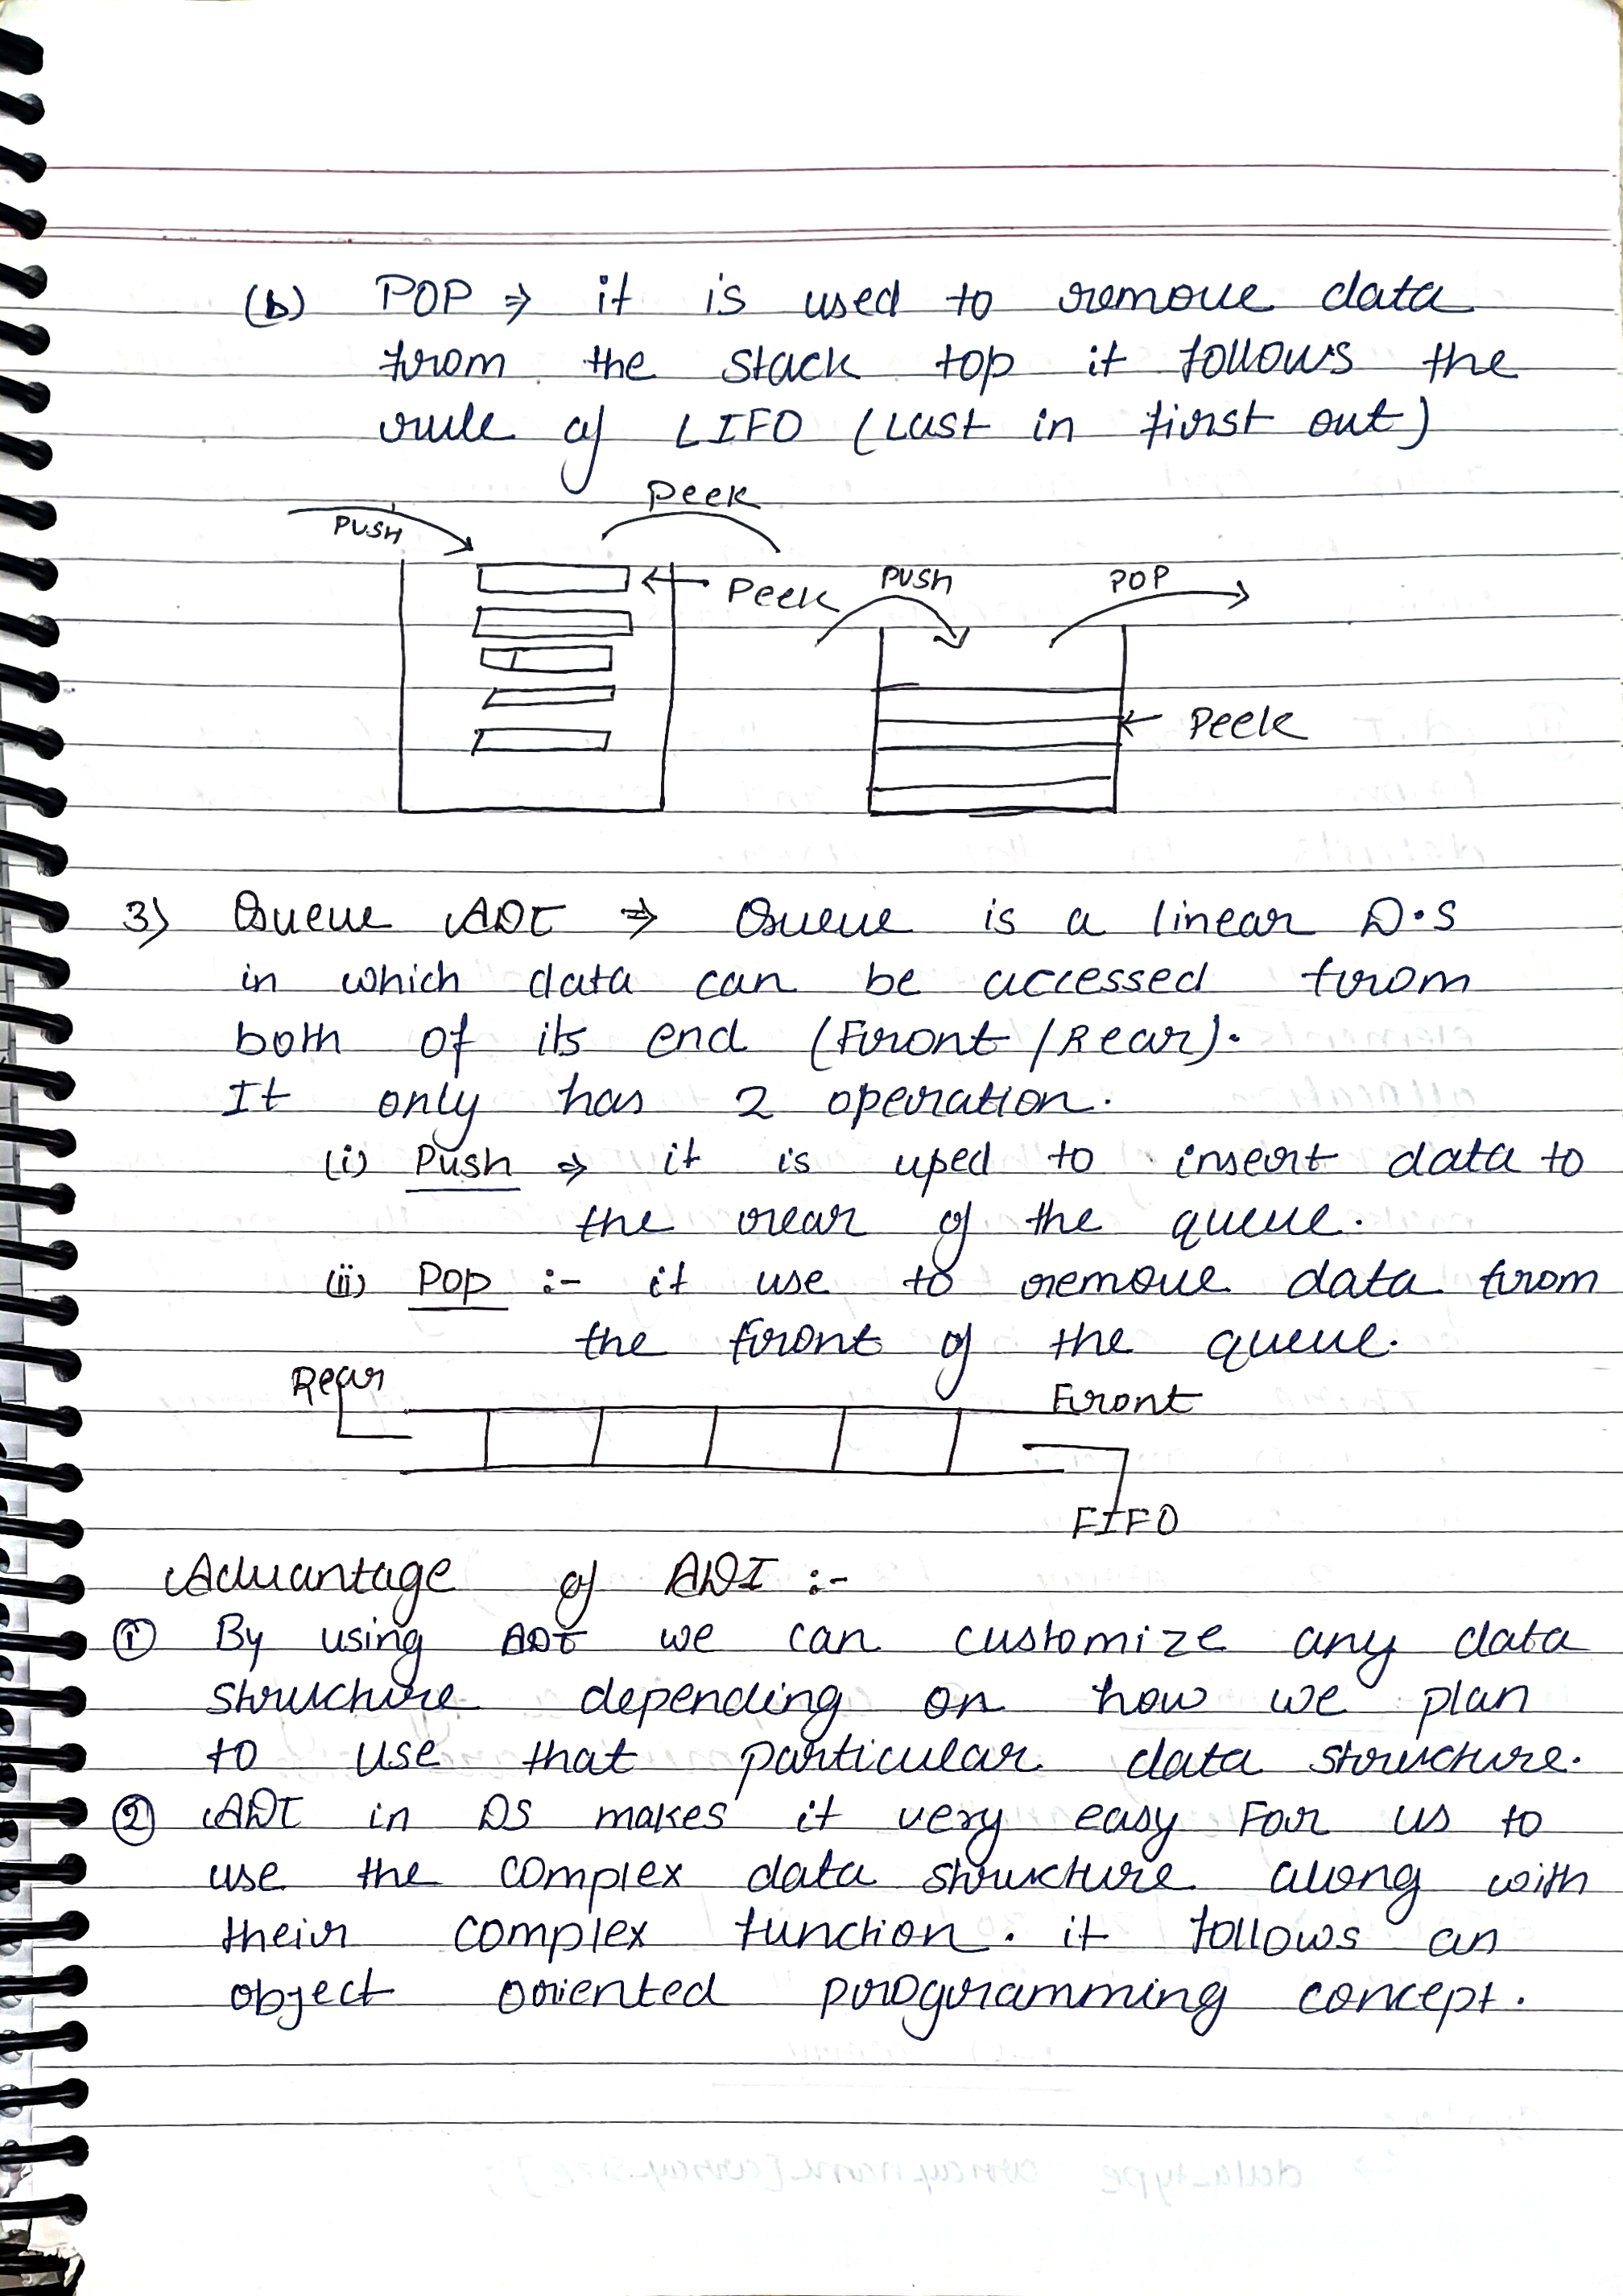 (b) POP ⇒ it is used to remove data
from the stack top it follows the
rule of LIFO (Last in first out)
PUSH
Peek
Peek
PUSH
POP
Peek
3) Queue ADT ⇒ Queue is a linear D.S
in which data can be accessed from
both of its end (Front / Rear).
It only has 2 operation.
(i) Push ⇒ it is used to insert data to
the rear of the queue.
(ii) Pop :- it use to remove data from
the front of the queue.
Rear
Front
FIFO
Advantage of ADT :-
① By using ADT we can customize any data
structure depending on how we plan
to use that particular data structure.
② ADT in DS makes it very easy For us to
use the complex data structure along with
their complex function. it follows an
object oriented programming concept.